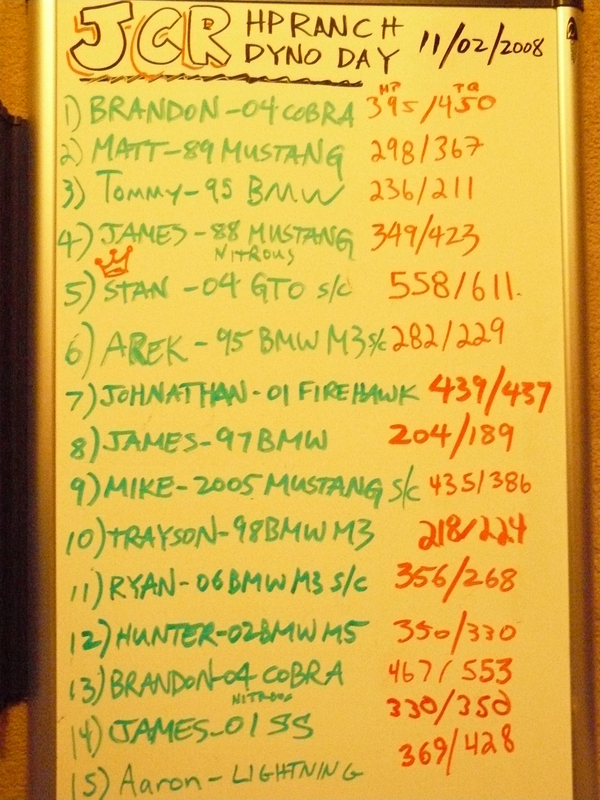 JCR HP RANCH DYNO DAY 11/02/2008
HP TQ
1) BRANDON-04 COBRA 395/450
2) MATT-89 MUSTANG 298/367
3) TOMMY-95 BMW 236/211
4) JAMES-88 MUSTANG 349/423
NITROUS
5) STAN-04 GTO s/c 558/611
6) AREK-95 BMW M3 s/c 282/229
7) JOHNATHAN-01 FIREHAWK 439/437
8) JAMES-97 BMW 204/189
9) MIKE-2005 MUSTANG s/c 435/386
10) TRAYSON-98 BMW M3 218/224
11) RYAN-06 BMW M3 S/C 356/268
12) HUNTER-02 BMW M5 350/330
13) BRANDON-04 COBRA 467/553
NITROUS
14) JAMES-01 SS 330/350
15) Aaron-LIGHTNING 369/428